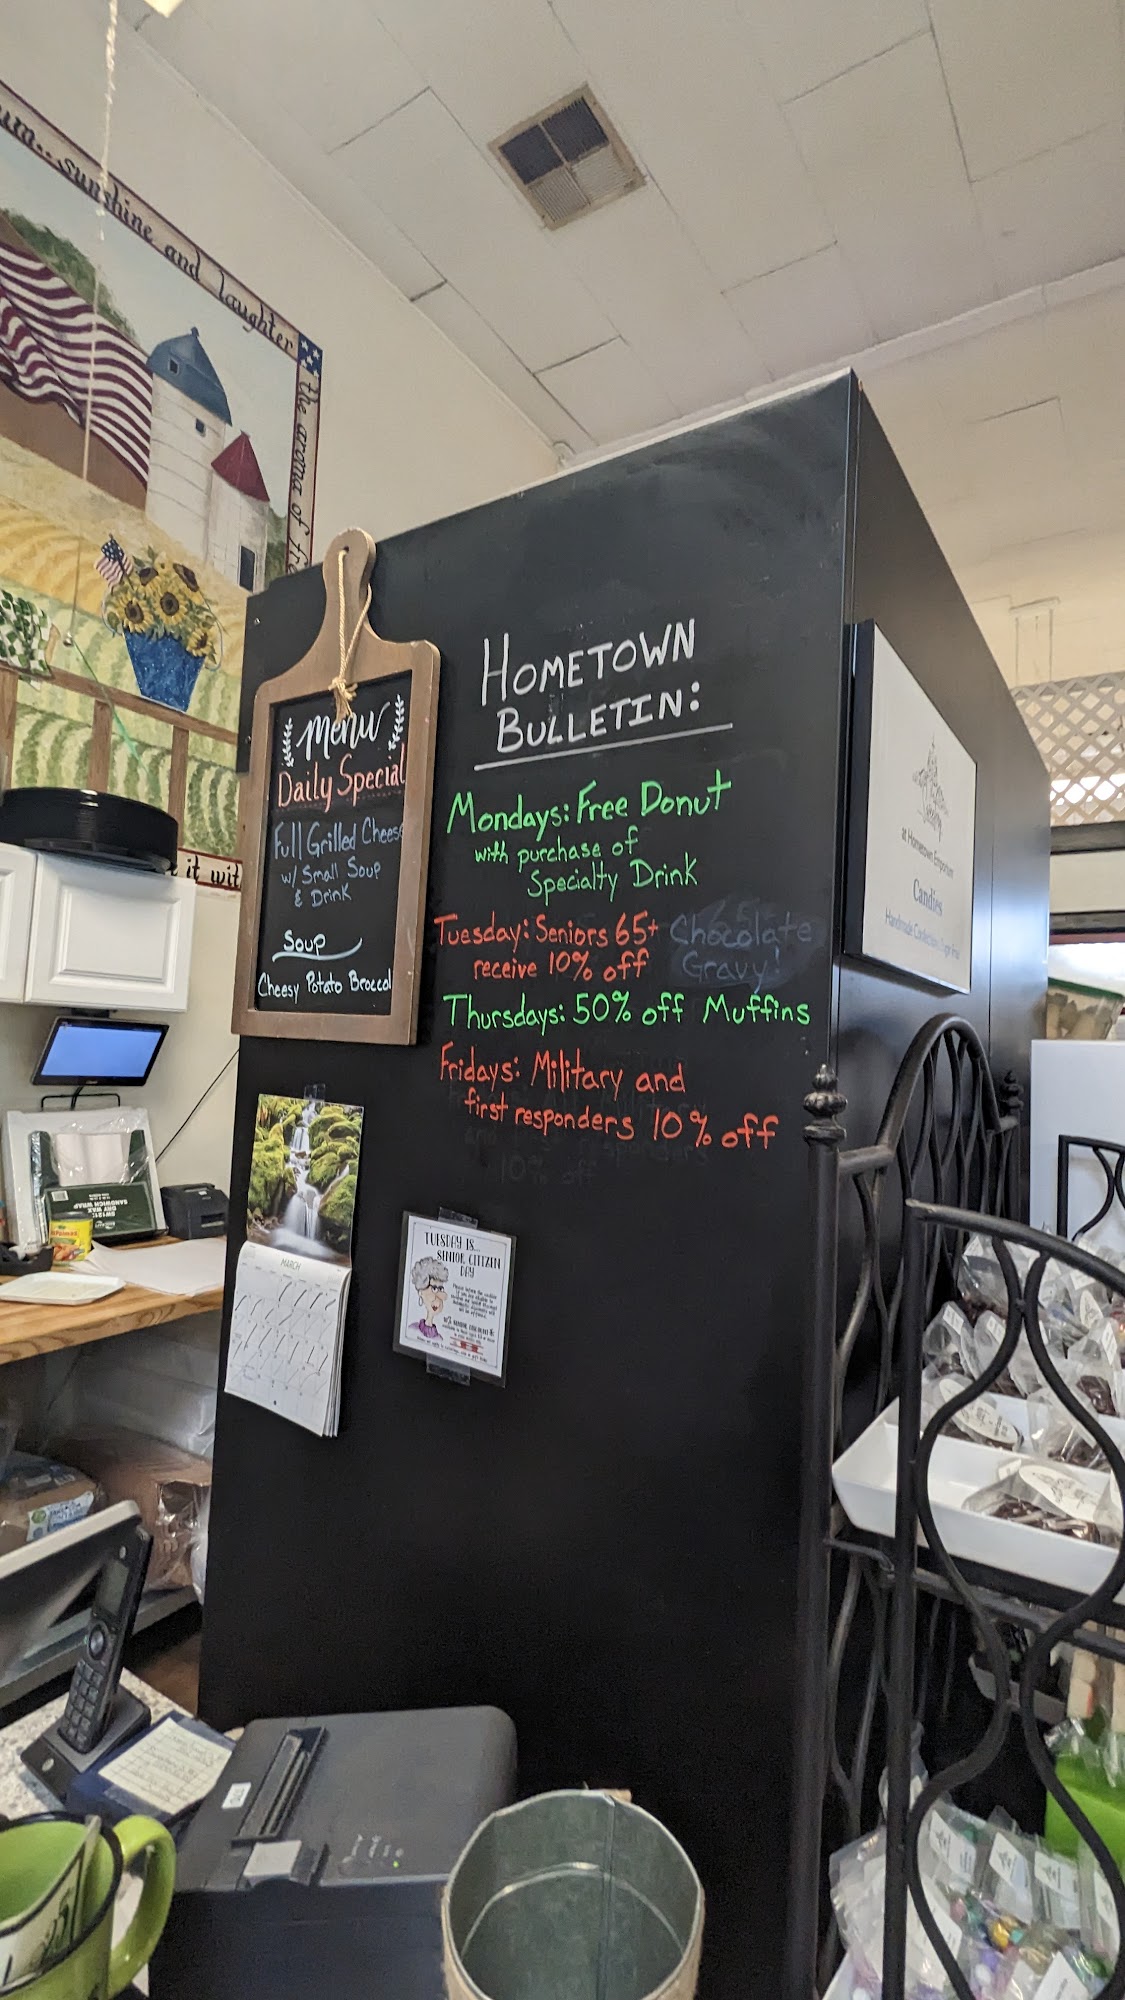 sunshine and laughter
the aroma of
it wit
Menu
Daily Special
Full Grilled Cheese
w/ Small Soup
& Drink
Soup
Cheesy Potato Broccol
HOMETOWN
BULLETIN:
Mondays: Free Donut
with purchase of
Specialty Drink
Tuesday: Seniors 65+ Chocolate
receive 10% off Gravy!
Thursdays: 50% off Muffins
Fridays: Military and
first responders 10% off
10% off
at Hometown Emporium
Candies
Handmade
MARCH
TUESDAY IS...
SENIOR CITIZEN
DAY
DRY WAX
SANDWICH WRAP